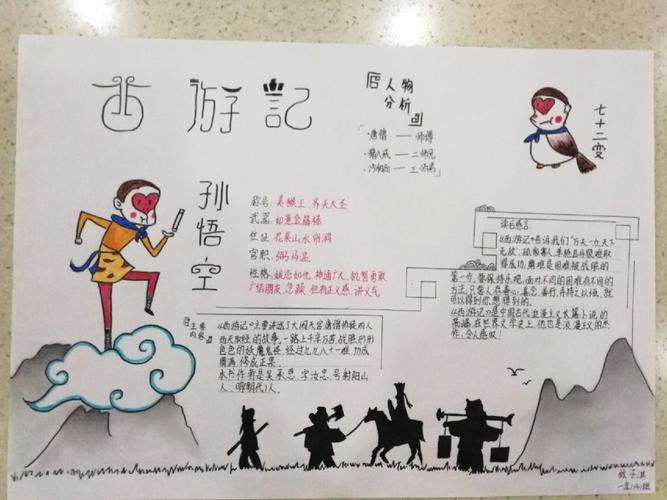 西游記
人物
分析
·唐僧 —— 师傅
·猪八戒 —— 二师兄
·沙和尚 —— 三师弟
七十二变
孙悟空
别号: 美猴王 齐天大圣
武器: 如意金箍棒
住址: 花果山水帘洞
官职: 弼马温
性格: 嫉恶如仇,神通广大,机智勇敢
广结朋友 急躁 但有正义感 讲义气
读后感:
《西游记》告诉我们"万夫一力,天下
无敌",孤家寡人,单枪匹马很难取
得成功,磨难是困难被战胜的
第一步,要保持乐观,面对不同的困难有不同的
方法,只要人有善心、善念、善行,并持之以恒,就
可以得到你想得到的。
《西游记》是中国古代浪漫主义长篇小说的
高峰,在世界文学史上,他也是浪漫主义的杰
作,令人感叹!
主要
内容
《西游记》主要讲述了大闹天宫唐僧师徒四人
西天取经的故事,一路上千辛万苦,战胜形形
色色的妖魔鬼怪,经过九九八十一难,功成
圆满,修成正果。
本书作者是吴承恩,字汝忠,号射阳山
人,明朝代人。